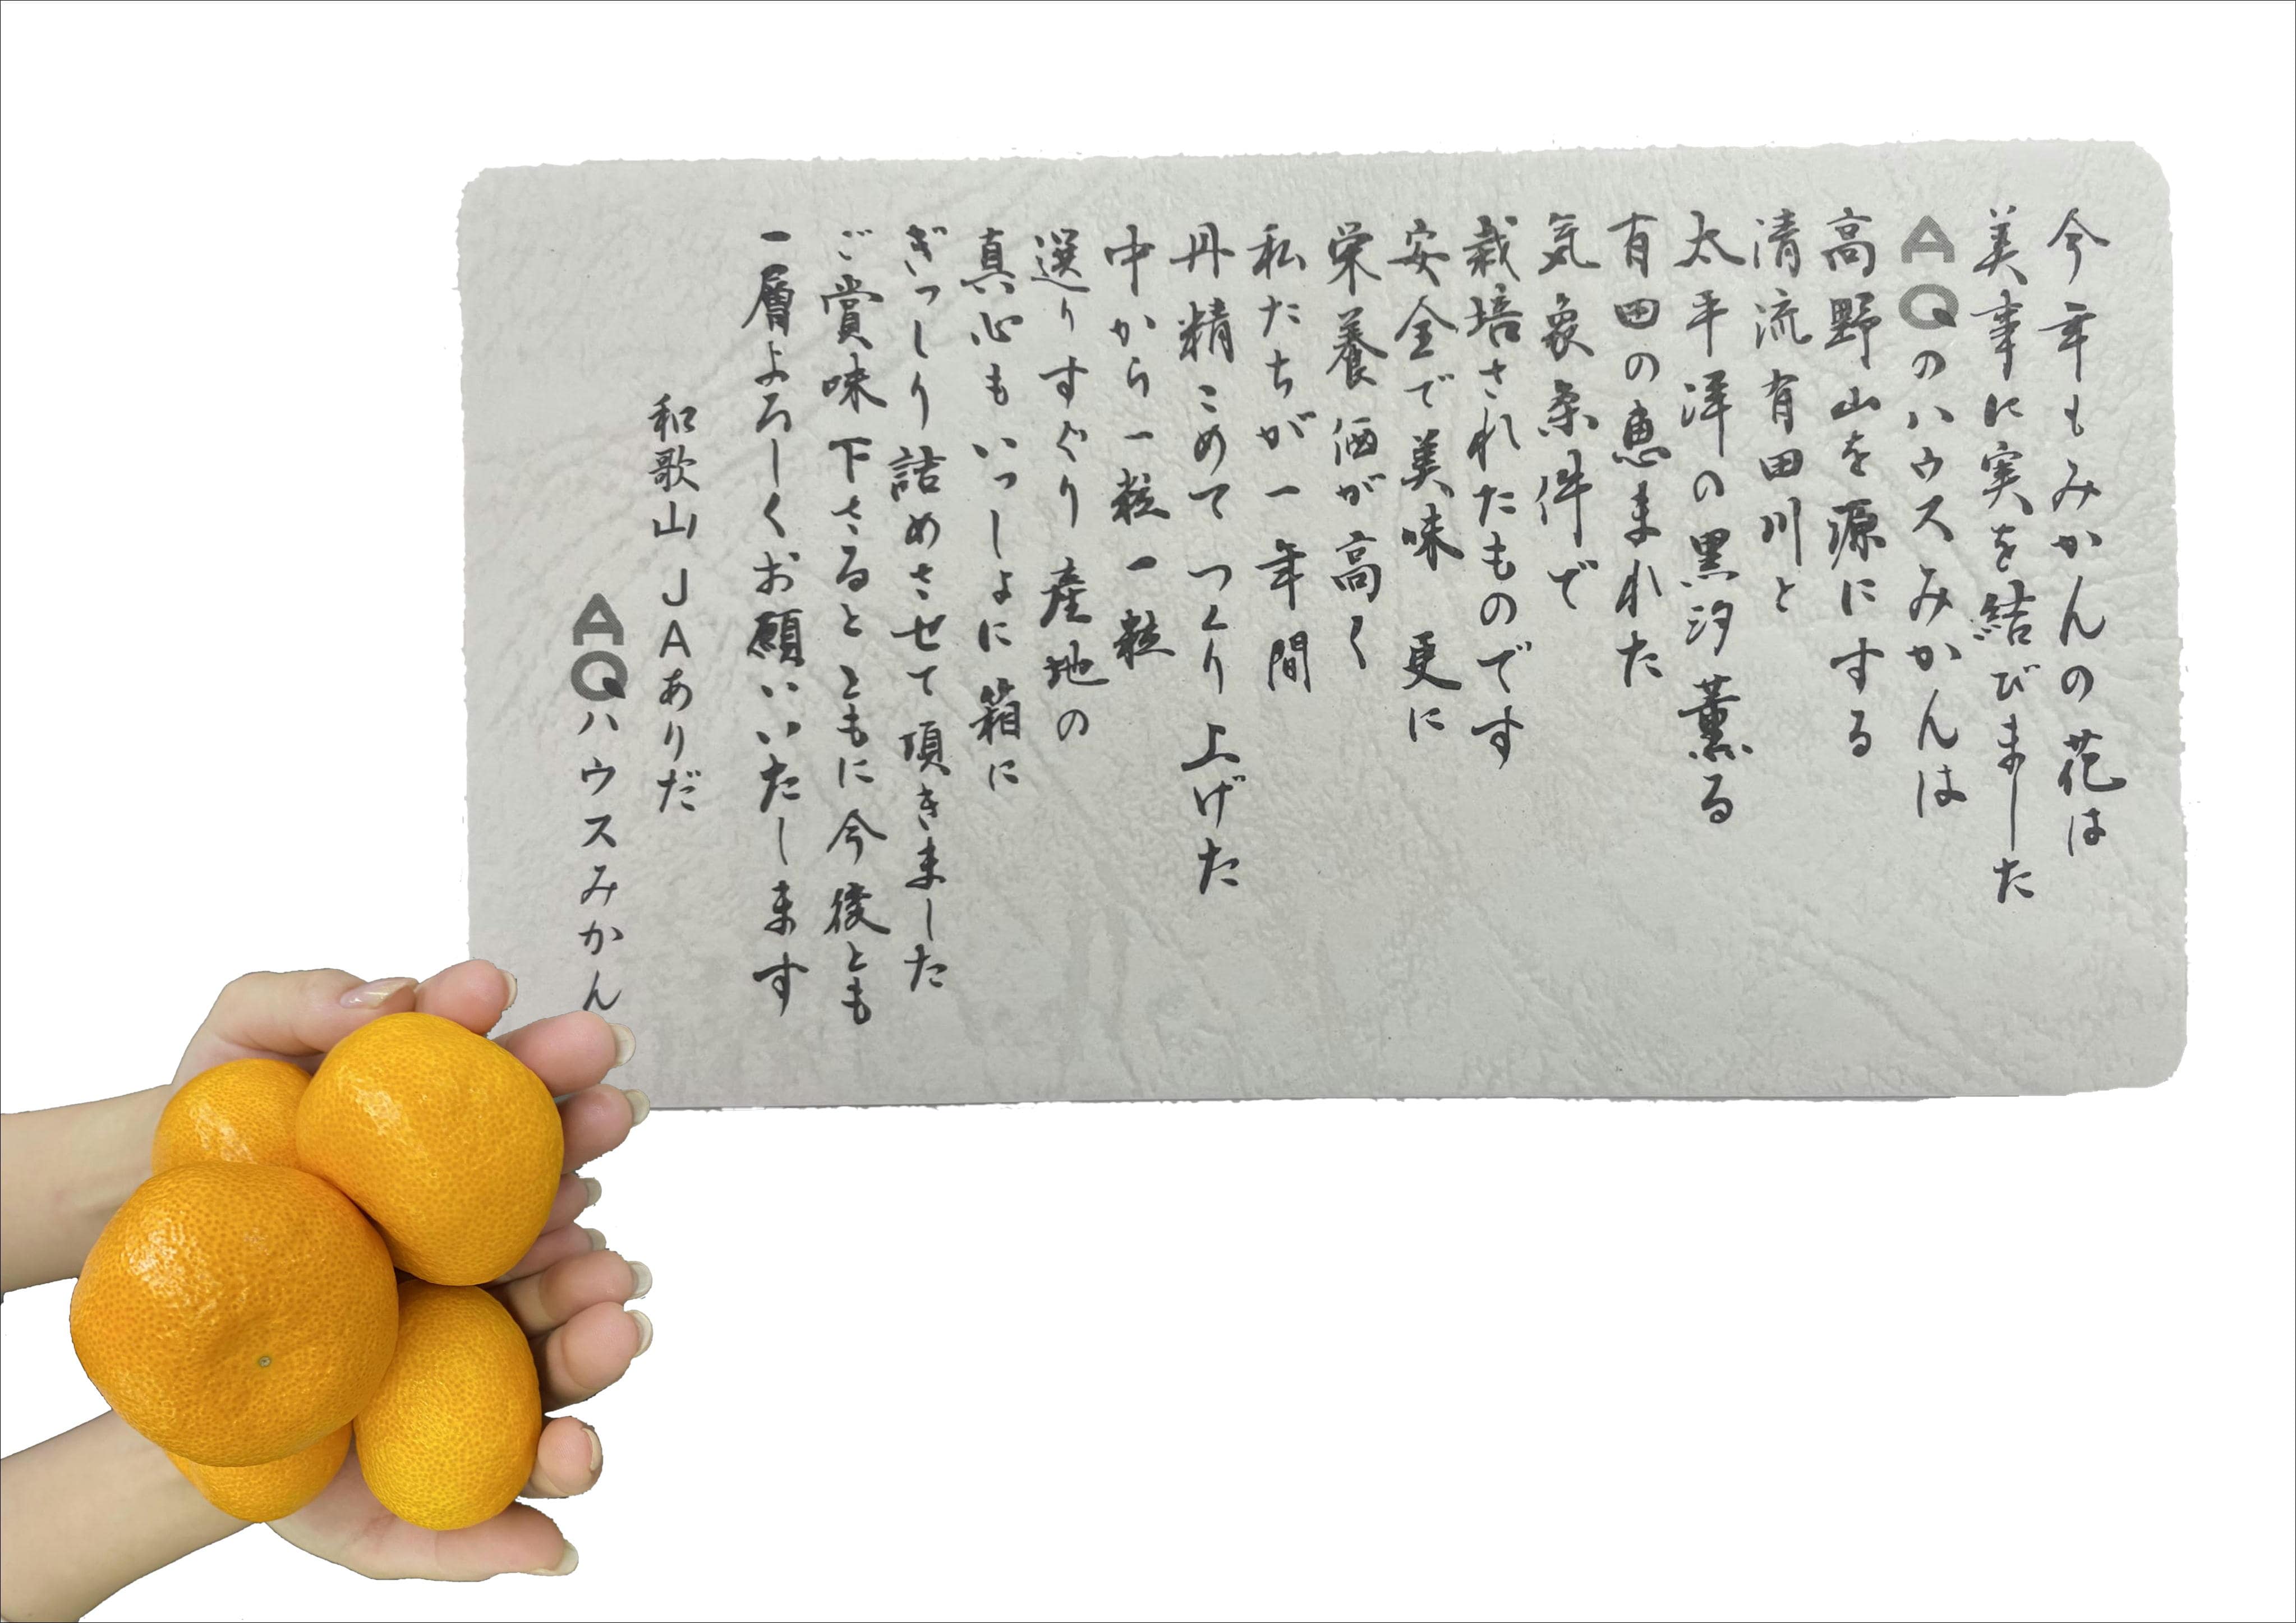 今年もみかんの花は
美事に実を結びました
AQのハウスみかんは
高野山を源にする
清流有田川と
太平洋の黒汐薫る
有田の恵まれた
気象条件で
栽培されたものです
安全で美味 更に
栄養価が高く
私たちが一年間
丹精こめてつくり上げた
中から一粒一粒
選りすぐり産地の
真心もいっしょに箱に
ぎっしり詰めさせて頂きました
ご賞味下さるとともに今後とも
一層よろしくお願いいたします
和歌山 JAありだ
AQハウスみかん